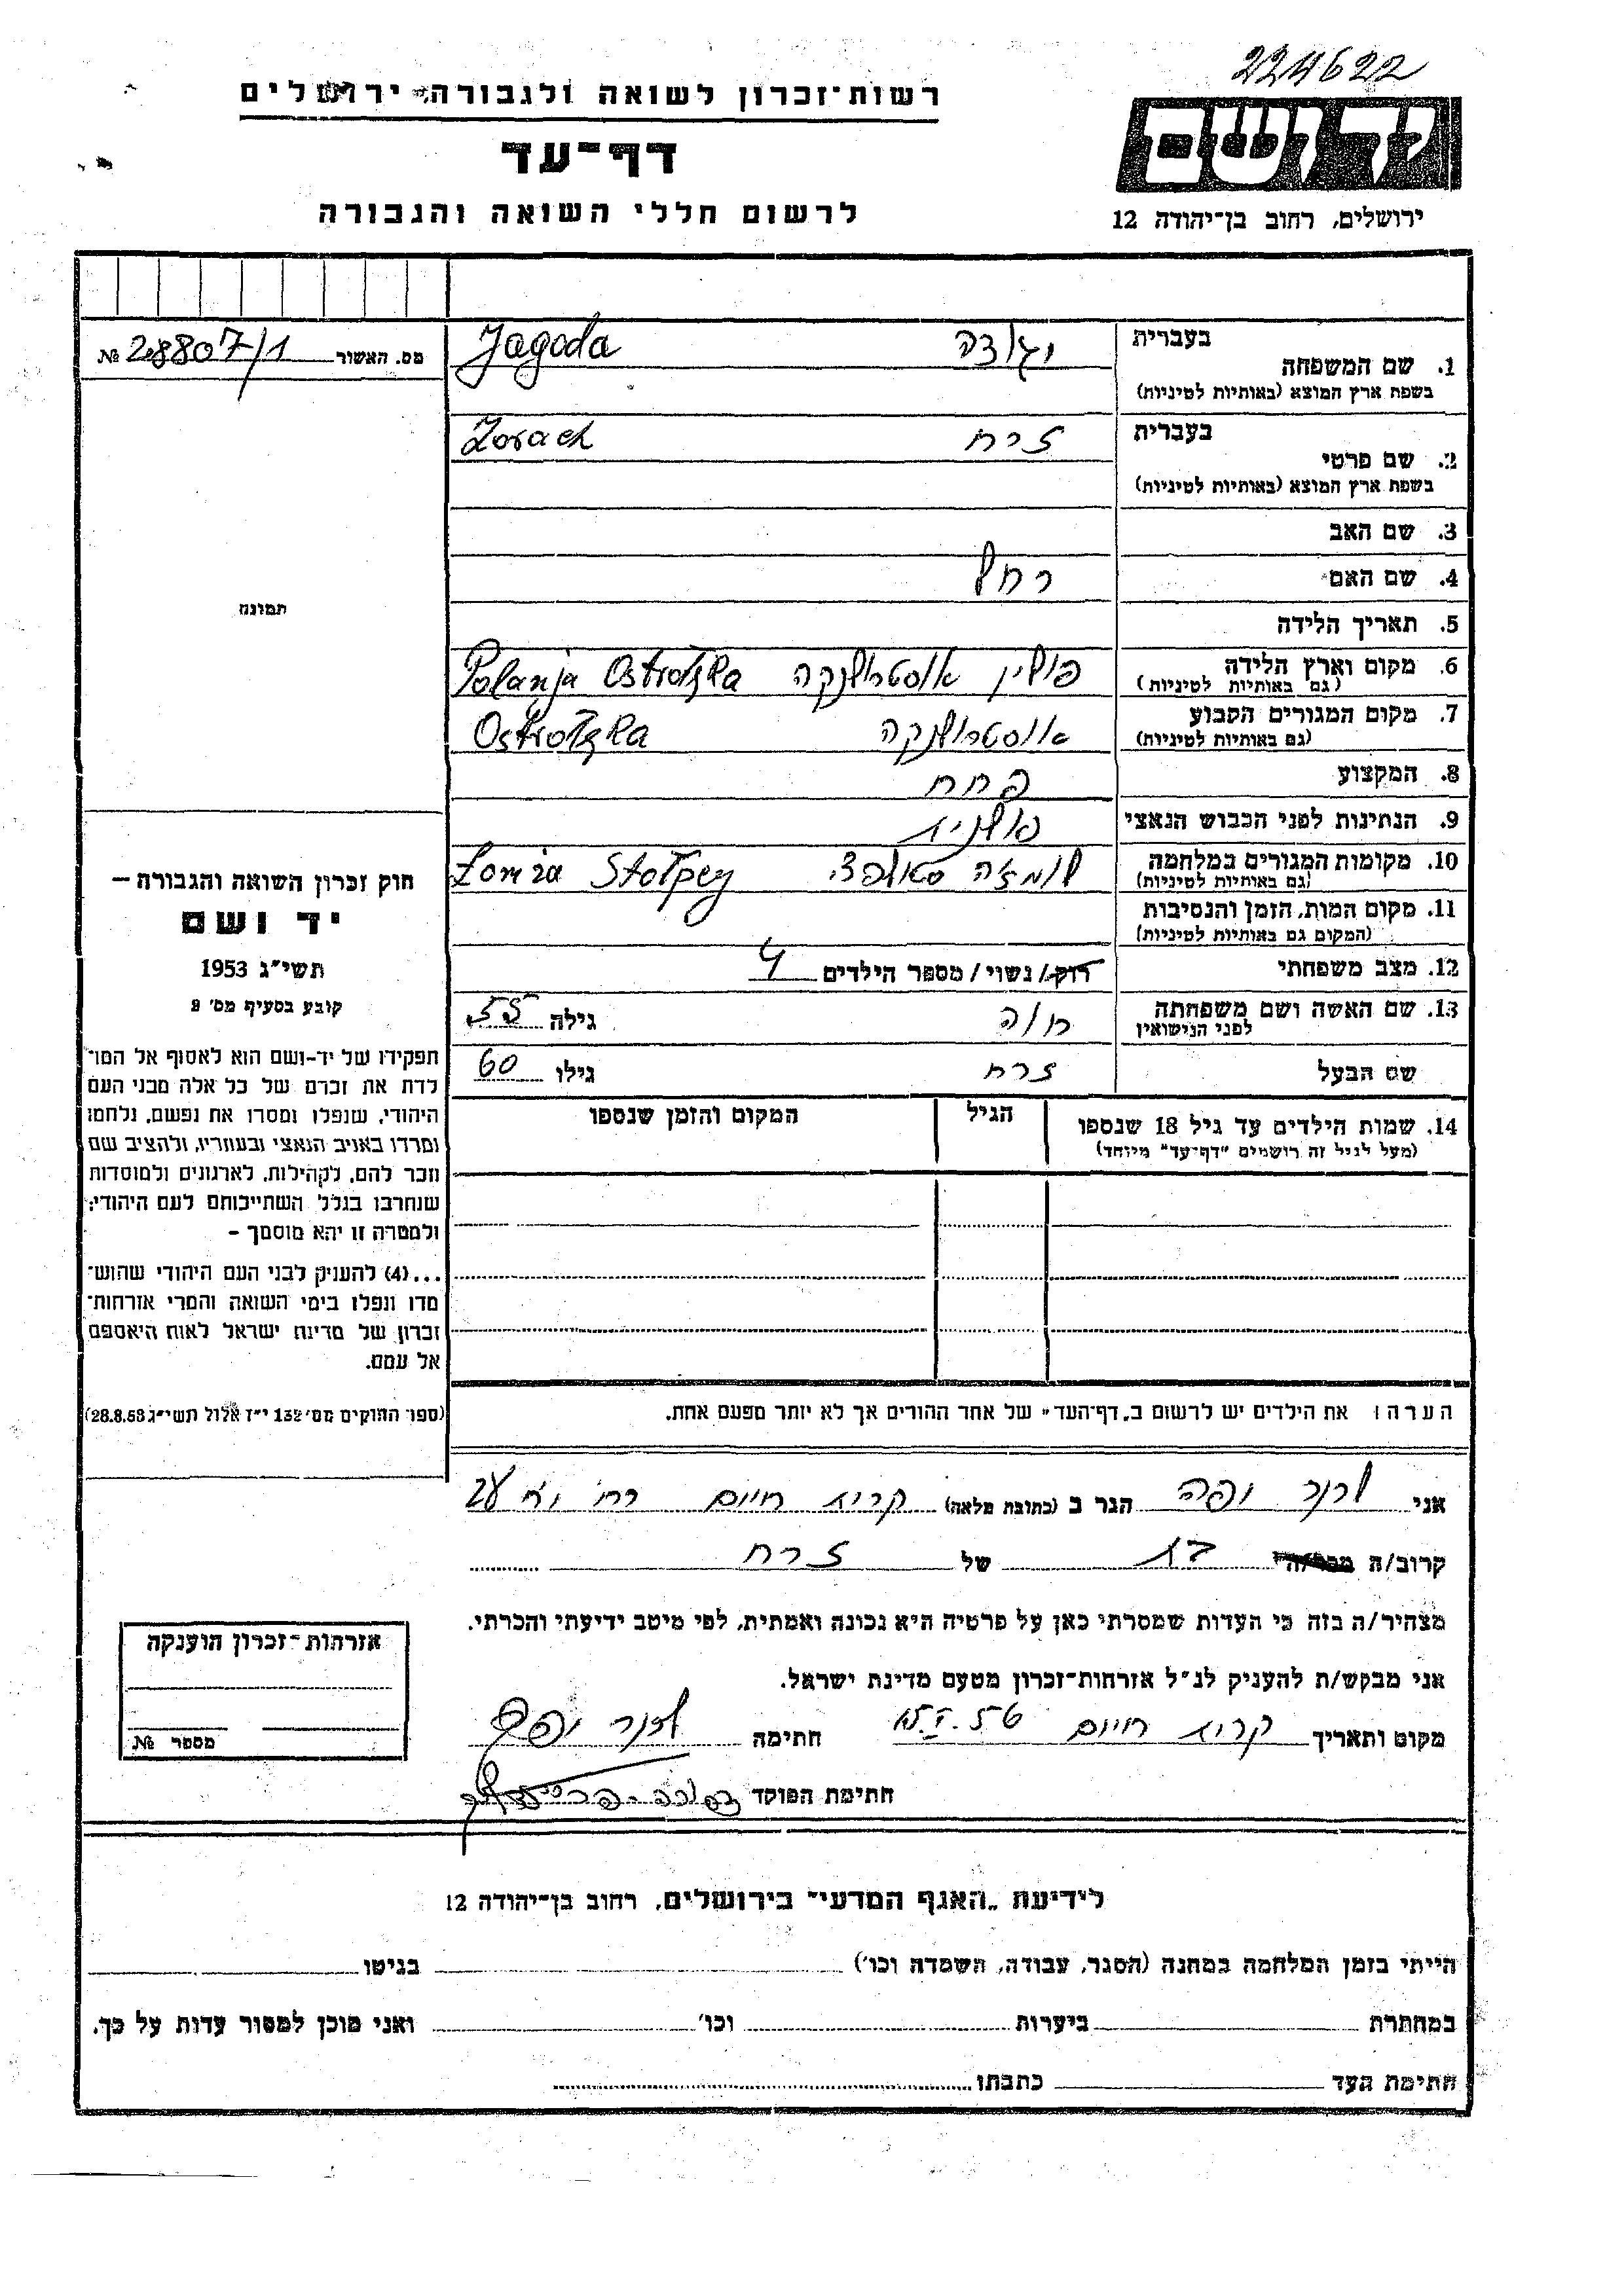 224622
רשות־זכרון לשואה ולגבורה, ירושלים
דף־עד
לרשום חללי השואה והגבורה
יד ושם
ירושלים, רחוב בן־יהודה 12
מס. האשור 28807/1 №
1. שם המשפחה בעברית יגודה Jagoda
בשפת ארץ המוצא (באותיות לטיניות)
2. שם פרטי בעברית זרח Zorach
בשפת ארץ המוצא (באותיות לטיניות)
3. שם האב
4. שם האם רחל
תמונה
5. תאריך הלידה
6. מקום וארץ הלידה פולין אוסטרולנקה Polanja Ostrołzka
(גם באותיות לטיניות)
7. מקום המגורים הקבוע אוסטרולנקה Ostrołzka
(גם באותיות לטיניות)
8. המקצוע פחח
9. הנתינות לפני הכבוש הנאצי פולנית
10. מקומות המגורים במלחמה לומזה סטולפצי Łomża Stołpcy
(גם באותיות לטיניות)
11. מקום המות, הזמן והנסיבות
(המקום גם באותיות לטיניות)
12. מצב משפחתי רוק/ נשוי/ מספר הילדים 4
13. שם האשה ושם משפחתה חוה גילה 55
לפני הנישואין
שם הבעל זרח גילו 60
14. שמות הילדים עד גיל 18 שנספו הגיל המקום והזמן שנספו
(מעל לגיל זה רושמים "דף־עד" מיוחד)
חוק זכרון השואה והגבורה –
יד ושם
תשי"ג 1953
קובע בסעיף מס' 2
תפקידו של יד-ושם הוא לאסוף אל המו־
לדת את זכרם של כל אלה מבני העם
היהודי, שנפלו ומסרו את נפשם, נלחמו
ומרדו באויב הנאצי ובעוזריו, ולהציב שם
וזכר להם, לקהילות, לארגונים ולמוסדות
שנחרבו בגלל השתייכותם לעם היהודי;
ולמטרה זו יהא מוסמך –
...(4) להעניק לבני העם היהודי שהוש־
מדו ונפלו בימי השואה והמרי אזרחות־
זכרון של מדינת ישראל לאות היאספם
אל עמם.
(ספר החוקים מס' 132 י"ז אלול תשי"ג 28.8.53)
הערה: את הילדים יש לרשום ב„דף־העד" של אחד ההורים אך לא יותר מפעם אחת.
אני יפה הגר ב (כתובת מלאה) קרית חיים רח'
קרוב/ה בת של זרח
מצהיר/ה בזה כי העדות שמסרתי כאן על פרטיה היא נכונה ואמתית, לפי מיטב ידיעתי והכרתי.
אני מבקש/ת להעניק לנ"ל אזרחות־זכרון מטעם מדינת ישראל.
מקום ותאריך קרית חיים חתימה יפה
חתימת הפוקד
אזרחות־זכרון הוענקה
מספר №
לידיעת „האגף המדעי" בירושלים, רחוב בן־יהודה 12
הייתי בזמן המלחמה במחנה (הסגר, עבודה, השמדה וכו') בגיטו
במחתרת ביערות וכו' ואני מוכן למסור עדות על כך.
חתימת העד כתבתו